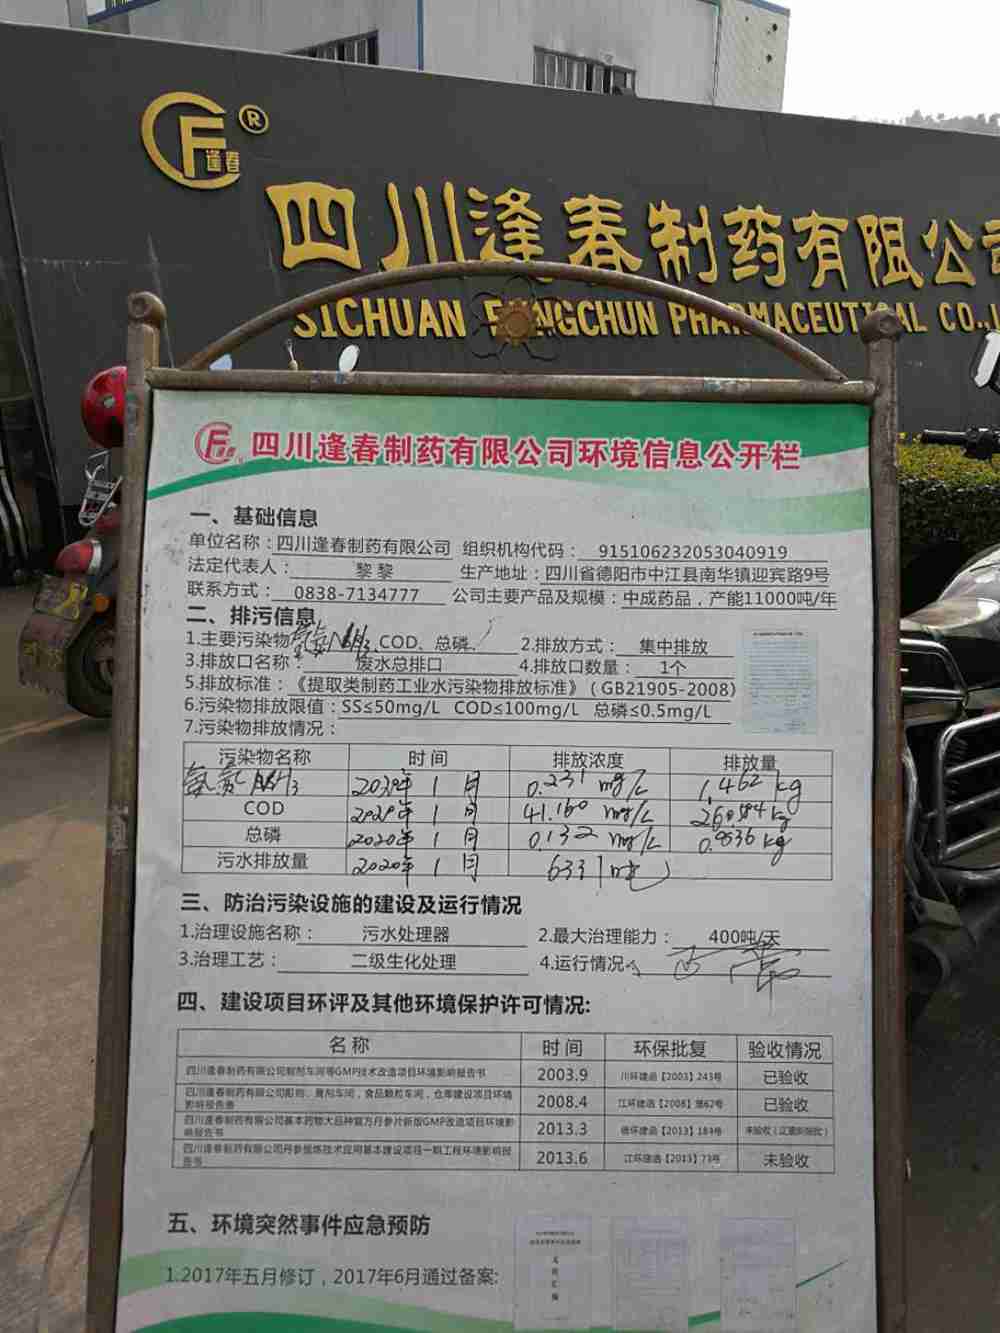 CF®
逢春
四川逢春制药有限公司
SICHUAN FENGCHUN PHARMACEUTICAL CO.,L
四川逢春制药有限公司环境信息公开栏
一、基础信息
单位名称：四川逢春制药有限公司 组织机构代码： 915106232053040919
法定代表人： 黎黎 生产地址：四川省德阳市中江县南华镇迎宾路9号
联系方式： 0838-7134777 公司主要产品及规模：中成药品，产能11000吨/年
二、排污信息
1.主要污染物 氨氮NH3、COD、总磷 2.排放方式： 集中排放
3.排放口名称： 废水总排口 4.排放口数量： 1个
5.排放标准：《提取类制药工业水污染物排放标准》（GB21905-2008）
6.污染物排放限值：SS≤50mg/L COD≤100mg/L 总磷≤0.5mg/L
7.污染物排放情况：
污染物名称 时间 排放浓度 排放量
氨氮NH3 年1月 0.231 mg/L 1.462 kg
COD 2020年1月 41.160 mg/L kg
总磷 2020年1月 0.132 mg/L 0.8336 kg
污水排放量 2020年1月 6331吨
三、防治污染设施的建设及运行情况
1.治理设施名称： 污水处理器 2.最大治理能力： 400吨/天
3.治理工艺： 二级生化处理 4.运行情况： 正常
四、建设项目环评及其他环境保护许可情况:
名称 时间 环保批复 验收情况
四川逢春制药有限公司制剂车间等GMP技术改造项目环境影响报告书 2003.9 川环建函【2003】243号 已验收
四川逢春制药有限公司 膏剂车间，食品颗粒车间，仓库建设项目环境影响报告表 2008.4 江环建函【2008】第62号 已验收
四川逢春制药有限公司基本药物大品种复方丹参片新版GMP改造项目环境影响报告书 2013.3 德环建函【2013】184号 未验收
四川逢春制药有限公司丹参 技术应用基本建设项目一期工程环境影响报告书 2013.6 江环建函【2013】73号 未验收
五、环境突然事件应急预防
1.2017年五月修订，2017年6月通过备案: